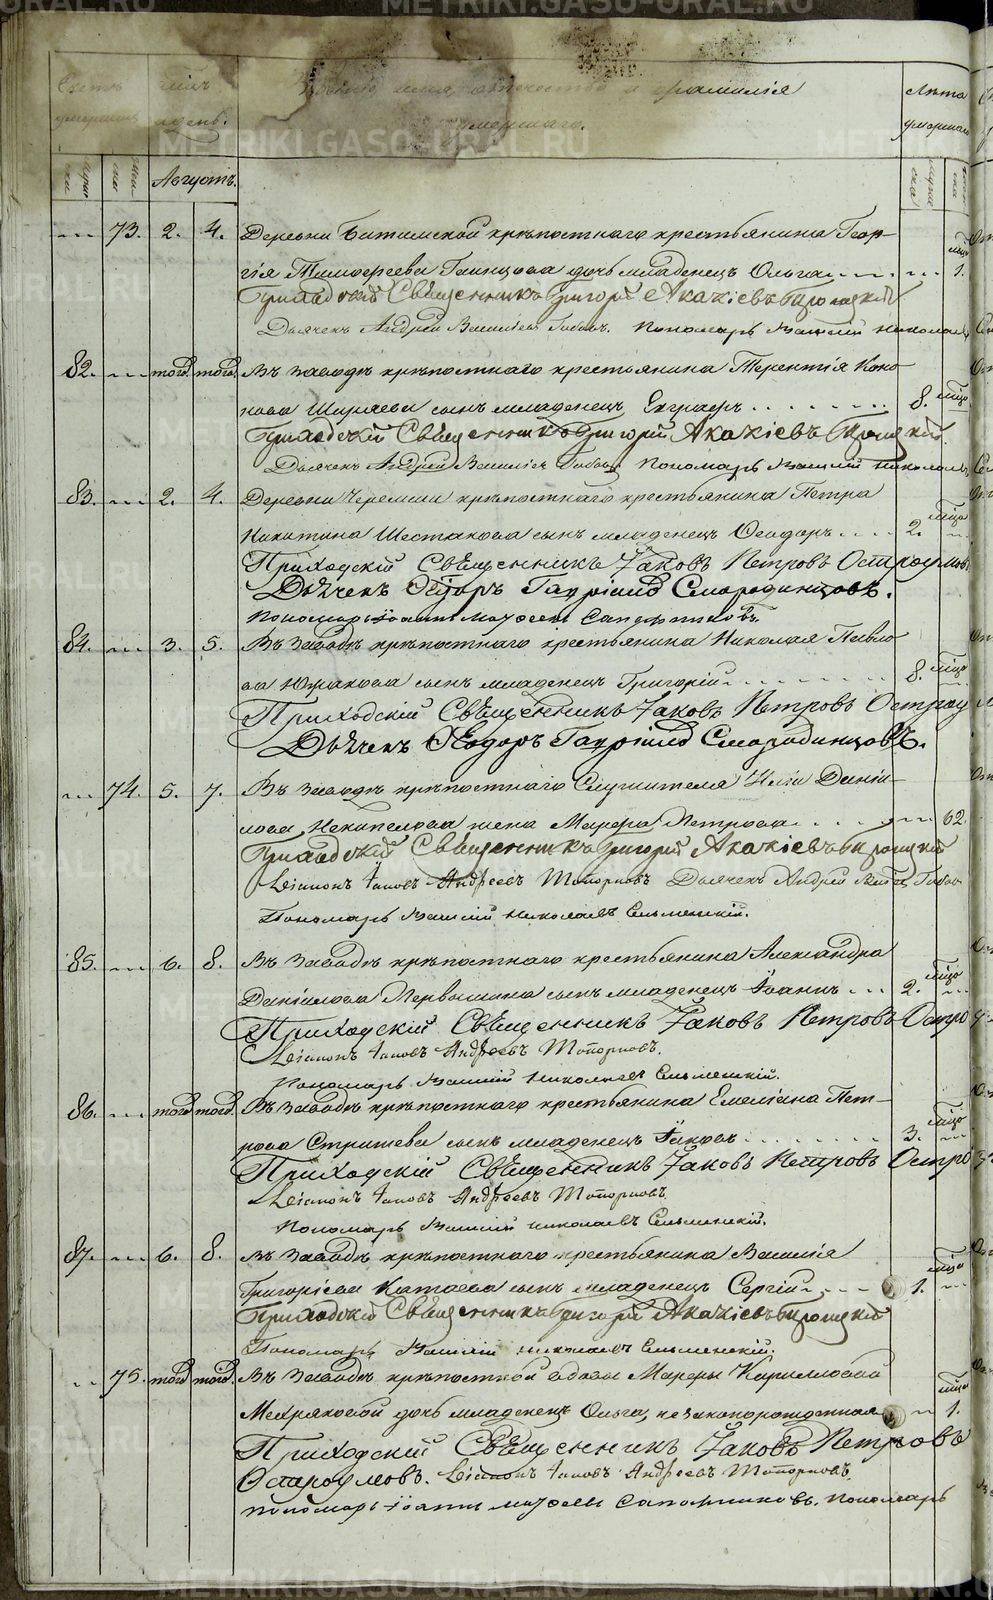 METRIKI.GASO-URAL.RU
Счетъ умершихъ
мѣс. и день.
Званіе, имя, отчество и фамилія умершаго.
Лѣта умершаго
Августъ.
73. 2. 4. Деревни Битимской крѣпостнаго крестьянина Геор-
гія Тимофеева дочь младенецъ Ольга мѣсяц. 1.
Приходскій Священникъ Григорій Акакіевъ
Дьячекъ Андрей Пономарь Василій Николаевъ
82. того того Въ Заводѣ крѣпостнаго крестьянина Терентія Коно-
нова Ширяева сынъ младенецъ Евграфъ 8. мѣсяц.
Приходскій Священникъ Григорій Акакіевъ
Дьячекъ Андрей Пономарь Василій Николаевъ
83. 2. 4. Деревни Черемши крѣпостнаго крестьянина Петра
Никитина Шестакова сынъ младенецъ Ѳеодоръ 2. мѣсяц.
Приходскій Священникъ Іаковъ Петровъ Остроумовъ
Дьячекъ Ѳеодоръ Гавріиловъ Смородинцовъ.
Пономарь Іоаннъ Матѳеевъ Сапожниковъ
84. 3. 5. Въ Заводѣ крѣпостнаго крестьянина Николая Павло-
ва Южакова сынъ младенецъ Григорій 8. мѣсяц.
Приходскій Священникъ Іаковъ Петровъ Остроу
Дьячекъ Ѳеодоръ Гавріиловъ Смородинцовъ.
74. 5. 7. Въ Заводѣ крѣпостнаго Служителя Иліи Даніи-
лова Некипелова жена Марѳа Петрова 62.
Приходскій Священникъ Григорій Акакіевъ
Діаконъ Іаковъ Андреевъ Топорковъ Дьячекъ Андрей
Пономарь Василій Николаевъ Сельменскій.
85. 6. 8. Въ Заводѣ крѣпостнаго крестьянина Александра
Даніилова Первышина сынъ младенецъ Іоаннъ 2. мѣсяц.
Приходскій Священникъ Іаковъ Петровъ Остро
Діаконъ Іаковъ Андреевъ Топорковъ.
Пономарь Василій Николаевъ Сельменскій.
86. того того Въ Заводѣ крѣпостнаго крестьянина Емеліана Пет-
рова Стришева сынъ младенецъ Іаковъ 3. мѣсяц.
Приходскій Священникъ Іаковъ Петровъ Остро
Діаконъ Іаковъ Андреевъ Топорковъ.
Пономарь Василій Николаевъ Сельменскій.
87. 6. 8. Въ Заводѣ крѣпостнаго крестьянина Василія
Григоріева Катаева сынъ младенецъ Сергій 1. мѣсяц.
Приходскій Священникъ Григорій Акакіевъ
Пономарь Василій Николаевъ Сельменскій.
75. того того. Въ Заводѣ крѣпостной вдовы Марѳы Кирилловой
Мехряковой дочь младенецъ Ольга, незаконорожденная мѣсяц. 1.
Приходскій Священникъ Іаковъ Петровъ
Остроумовъ. Діаконъ Іаковъ Андреевъ Топорковъ.
пономарь Іоаннъ Матѳеевъ Сапожниковъ. Пономарь
METRIKI.GASO-URAL.RU